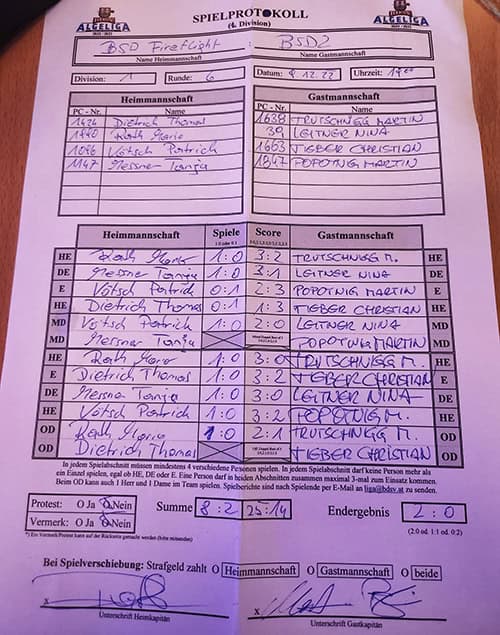 ALGELIGA
SPIELPROTOKOLL
(4. Division)
ALGELIGA
BSD Fireflight : BSD2
Name Heimmannschaft Name Gastmannschaft
Division: 1 Runde: 6 Datum: 9.12.22 Uhrzeit: 19°°
Heimmannschaft Gastmannschaft
PC - Nr. Name PC - Nr. Name
1424 Dietrich Thomas 1638 TRUTSCHNIGG MARTIN
1440 Rath Mario 39 LEITNER NINA
1096 Vötsch Patrick 1663 TIEBER CHRISTIAN
1147 Messner Tanja 1847 POPOTNIG MARTIN
Heimmannschaft Spiele Score Gastmannschaft
1:0 oder 0:1
HE Rath Mario 1:0 3:2 TRUTSCHNIGG M. HE
DE Messner Tanja 1:0 3:1 LEITNER NINA DE
E Vötsch Patrick 0:1 2:3 POPOTNIG MARTIN E
HE Dietrich Thomas 0:1 1:3 TIEBER CHRISTIAN HE
MD Vötsch Patrick 1:0 2:0 LEITNER NINA MD
MD Messner Tanja POPOTNIG MARTIN MD
HE Rath Mario 1:0 3:0 TRUTSCHNIGG M. HE
E Dietrich Thomas 1:0 3:2 TIEBER CHRISTIAN E
DE Messner Tanja 1:0 3:0 LEITNER NINA DE
HE Vötsch Patrick 1:0 3:2 POPOTNIG M. HE
OD Rath Mario 1:0 2:1 TRUTSCHNIGG M. OD
OD Dietrich Thomas TIEBER CHRISTIAN OD
In jedem Spielabschnitt müssen mindestens 4 verschiedene Personen spielen. In jedem Spielabschnitt darf keine Person mehr als
ein Einzel spielen, egal ob HE, DE oder E. Eine Person darf in beiden Abschnitten zusammen maximal 3-mal zum Einsatz kommen.
Beim OD kann auch 1 Herr und 1 Dame im Team spielen. Spielberichte sind nach Spielende per E-Mail an liga@bdsv.at zu senden.
Protest: O Ja O Nein Summe 8:2 25:14 Endergebnis 2:0
Vermerk: O Ja O Nein (2:0 od. 1:1 od. 0:2)
*) Ein Vermerk/Protest kann auf der Rückseite gemacht werden (bitte ankreuzen)
Bei Spielverschiebung: Strafgeld zahlt O Heimmannschaft O Gastmannschaft O beide
x x
Unterschrift Heimkapitän Unterschrift Gastkapitän